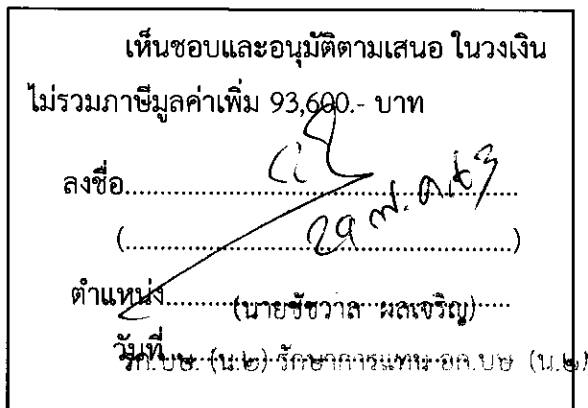 เห็นชอบและอนุมัติตามเสนอ ในวงเงิน
ไม่รวมภาษีมูลค่าเพิ่ม 93,600.- บาท
ลงชื่อ..............................................
29 พ.ค. 63
(..............................................)
ตำแหน่ง..............................................
(นายชัชวาล ผลเจริญ)
วันที่..............................................
รก.บษ. (น.๒) รักษาการแทน อก.บษ (น.๒)